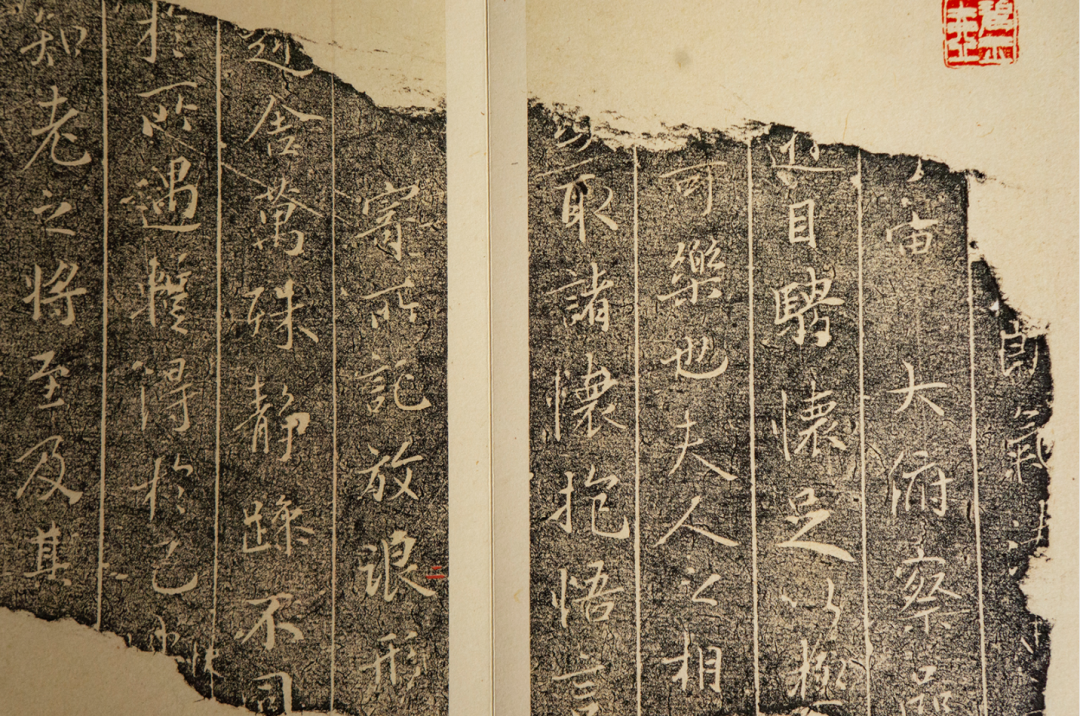 朗氣
宙 大俯察品
遊目騁懷足以極
可樂也夫人之相
取諸懷抱悟言
寄所託放浪形
舍萬殊靜躁不同
於所遇暫得於己
知老之將至及其